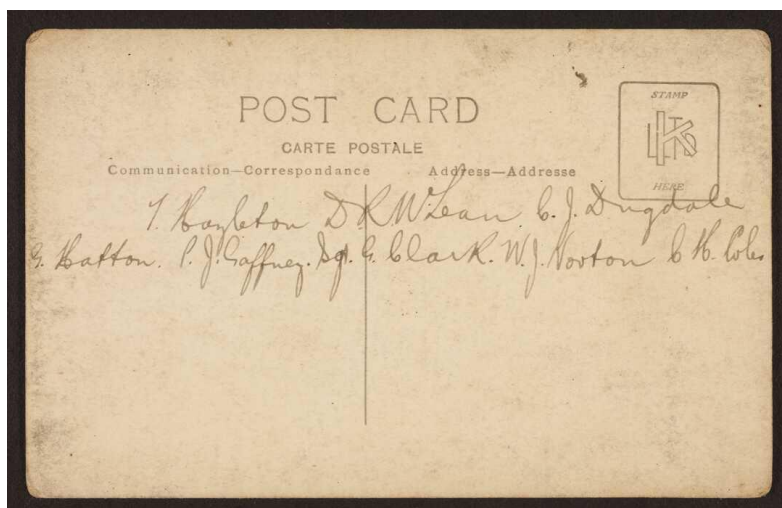 POST CARD
CARTE POSTALE
Communication—Correspondance Address—Addresse
STAMP
HERE
T. Hazleton D R McLean C. J. Dugdale
G. Hatton. P. J. Gaffney. Sgt. G. Clark. W. J. Norton C H. Coles